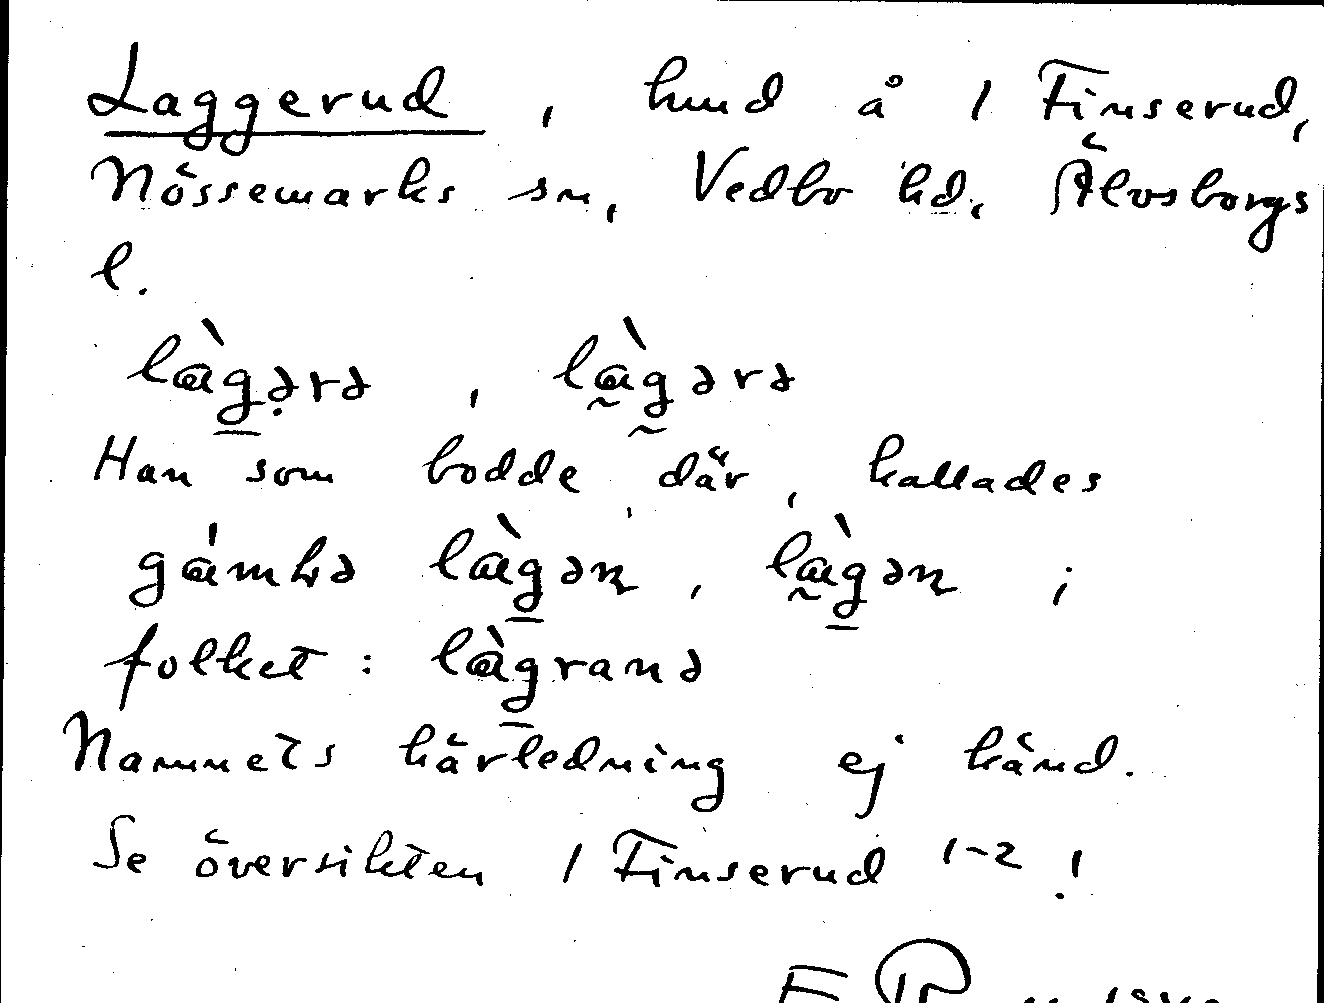 Laggerud, hmd å / Finserud,
Nössemarks sn, Vedbo hd, Älvsborgs
l.
làgərə, làgərə
Han som bodde där, kallades
gámḷə làgən, làgən ;
folket: làgranə
Namnets härledning ej känd.
Se översikten / Finserud 1-2!